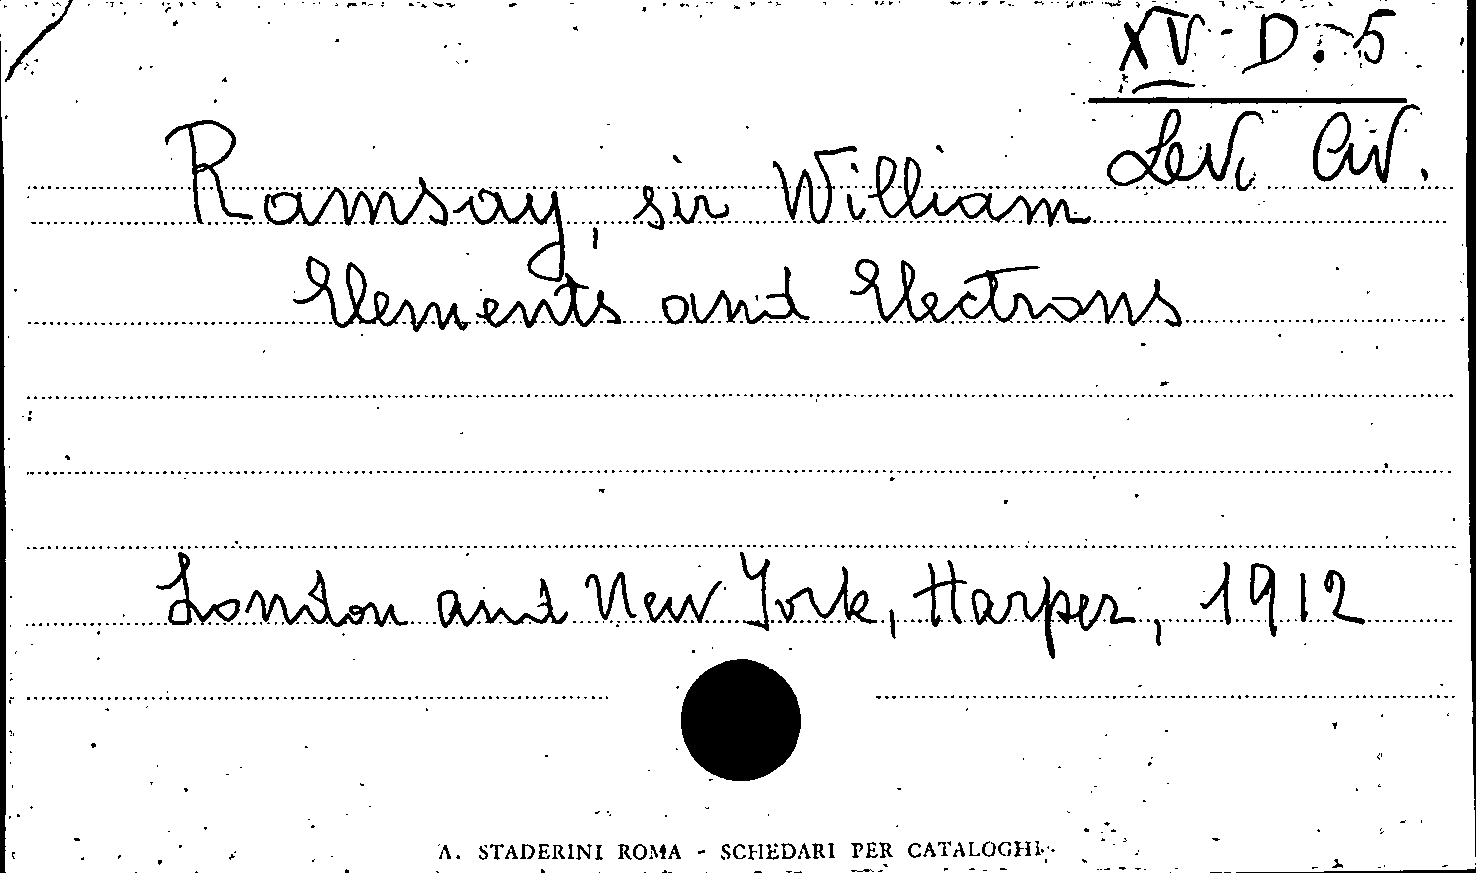 XV - D. 5
Levi Civ.
Ramsay, sir William
Elements and Electrons
London and New York, Harper, 1912
A. STADERINI ROMA - SCHEDARI PER CATALOGHI